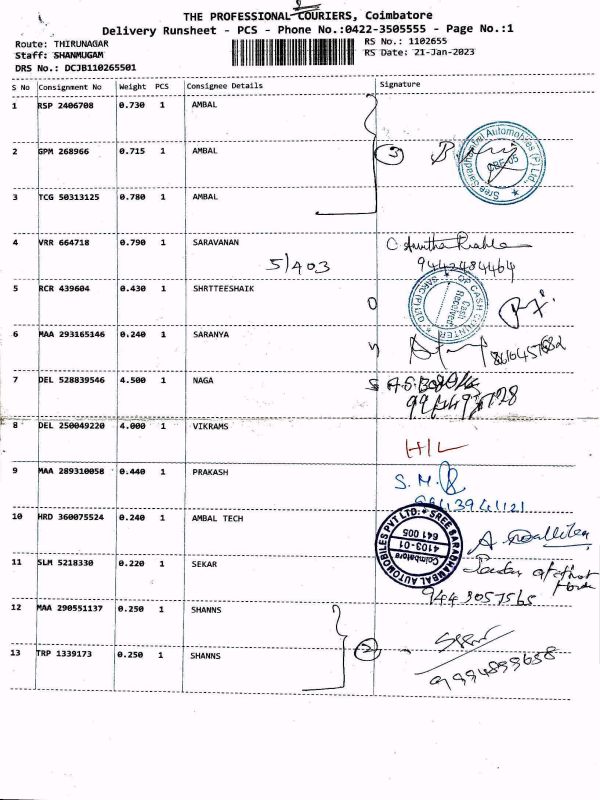 THE PROFESSIONAL COURIERS, Coimbatore
Delivery Runsheet - PCS - Phone No.:0422-3505555 - Page No.:1
Route: THIRUNAGAR
Staff: SHANMUGAM
DRS No.: DCJB110265501
RS No.: 1102655
RS Date: 21-Jan-2023
S No Consignment No Weight PCS Consignee Details Signature
1 RSP 2406708 0.730 1 AMBAL
2 GPM 268966 0.715 1 AMBAL 3
3 TCG 50313125 0.780 1 AMBAL
Sree Saradhambal Automobiles (P) Ltd.,
CBE-05
4 VRR 664718 0.790 1 SARAVANAN
5/403
9442484464
5 RCR 439604 0.430 1 SHRTTEESHAIK
Cash Received
6 MAA 293165146 0.240 1 SARANYA
7 DEL 528839546 4.500 1 NAGA
8 DEL 250049220 4.000 1 VIKRAMS
H/L
9 MAA 289310058 0.440 1 PRAKASH
S. M.
10 HRD 360075524 0.240 1 AMBAL TECH
SREE SARADHAMBAL AUTOMOBILES PVT LTD.
4103-01
Coimbatore
641 005
11 SLM 5218330 0.220 1 SEKAR
9443057565
12 MAA 290551137 0.250 1 SHANNS
2
13 TRP 1339173 0.250 1 SHANNS
9994899658